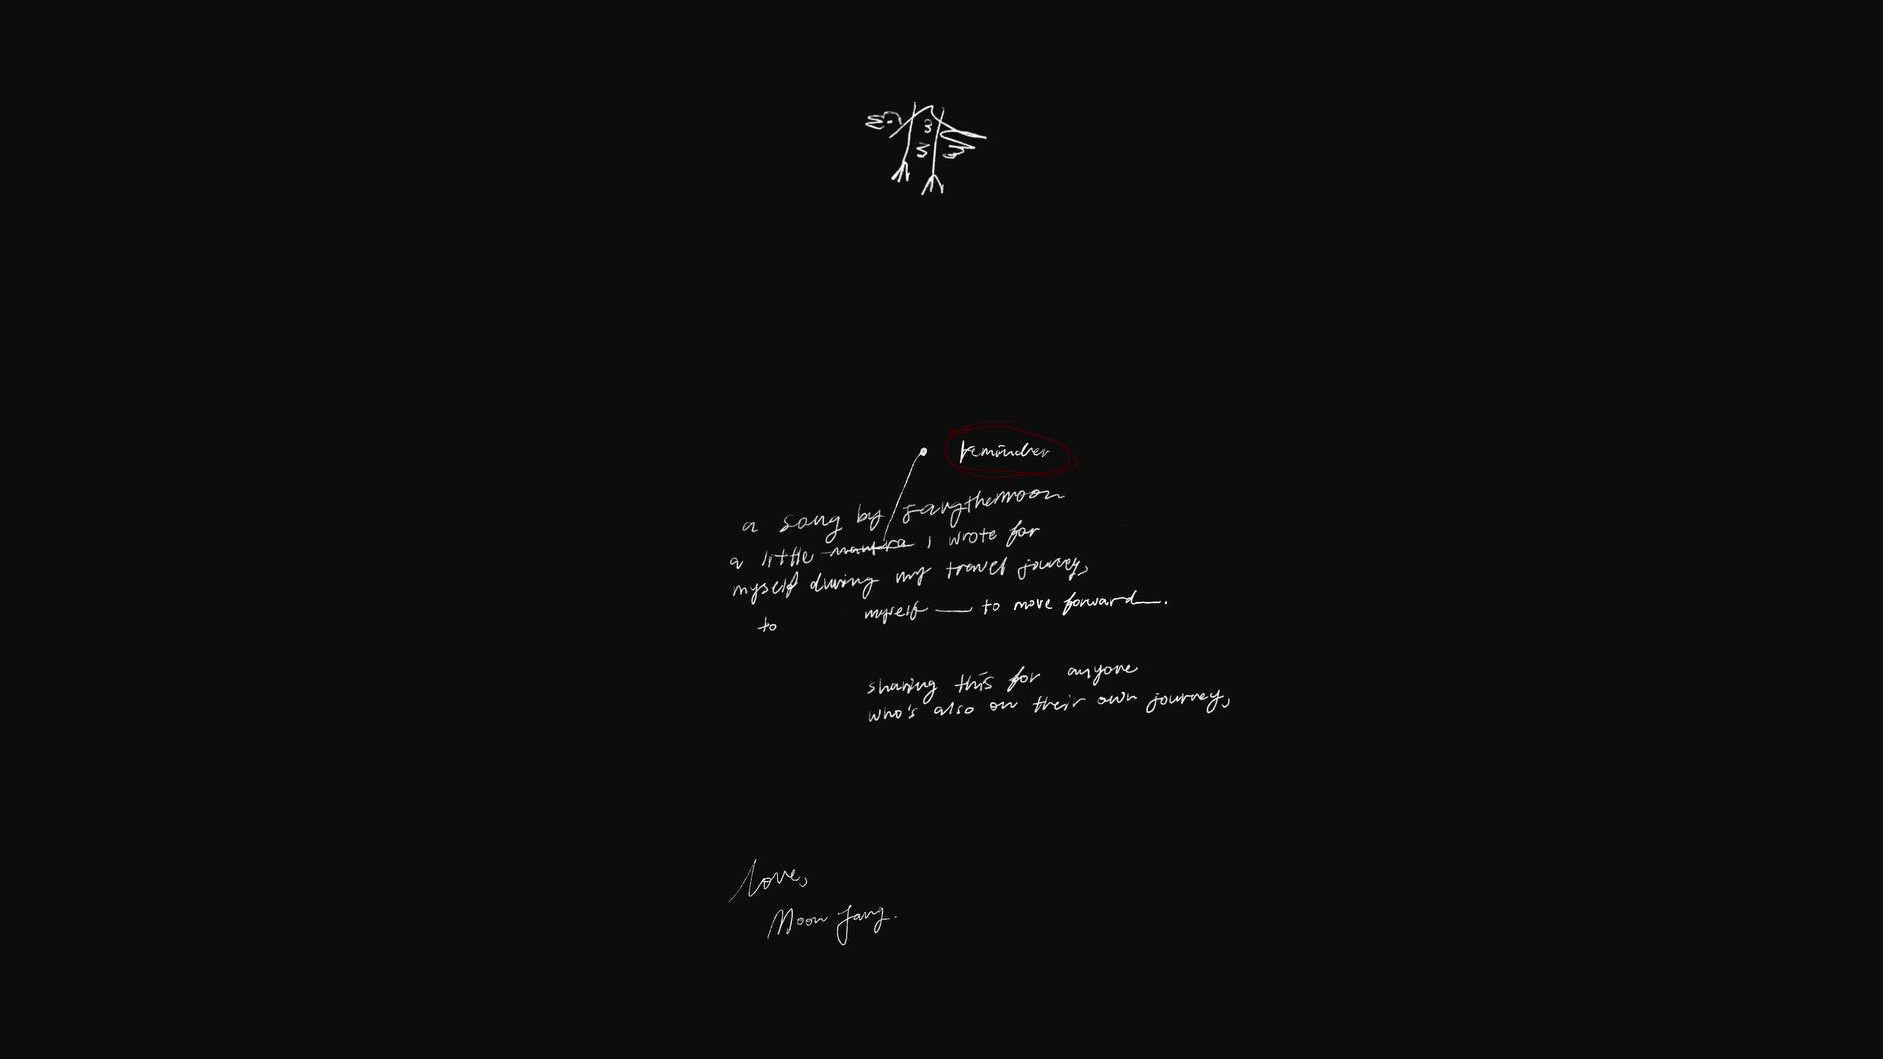 reminder
a song by Fangthemoon
a little mantra I wrote for
myself during my travel journey,
to myself — to move forward.
sharing this for anyone
who's also on their own journey,
love,
Moon Fang.